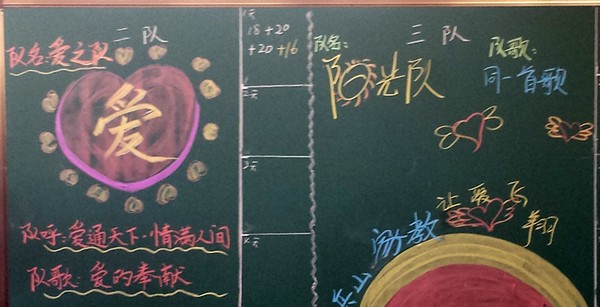 二队
队名:爱之队
爱
队呼:爱通天下·情满人间
队歌:爱的奉献
1天
18+20
+20+16
2天
3天
4天
三队
队名:
阳光队
队歌:
同一首歌
让爱飞翔